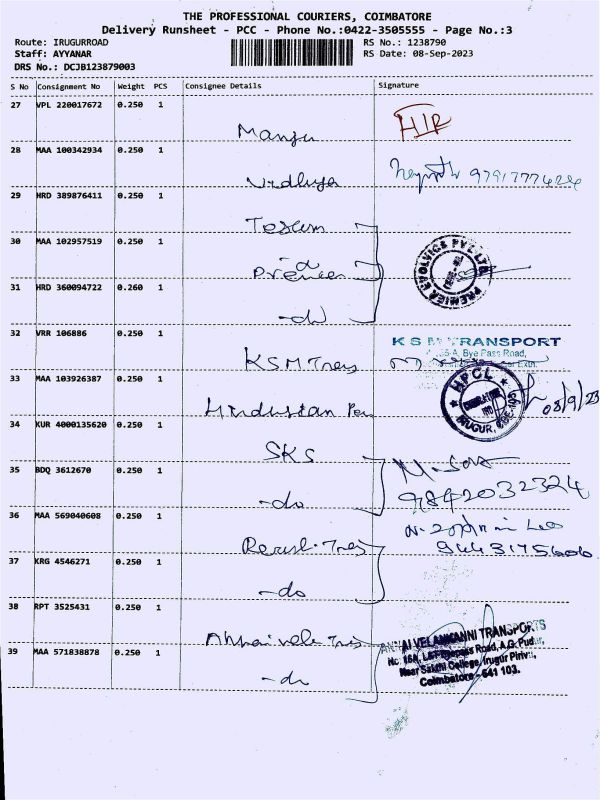 THE PROFESSIONAL COURIERS, COIMBATORE
Delivery Runsheet - PCC - Phone No.:0422-3505555 - Page No.:3
Route: IRUGURROAD RS No.: 1238790
Staff: AYYANAR RS Date: 08-Sep-2023
DRS No.: DCJB123879003
S No Consignment No Weight PCS Consignee Details Signature
27 VPL 220017672 0.250 1
Manju
28 MAA 100342934 0.250 1
Vidhya 9791777424
29 HRD 389876411 0.250 1
30 MAA 102957519 0.250 1
PREMIER EVOLVICS PVT LTD
31 HRD 360094722 0.260 1
-do
32 VRR 106886 0.250 1
KSM Trans
K S M TRANSPORT
Bye Pass Road,
33 MAA 103926387 0.250 1
Hindustan Pe
HPCL
IRUGUR, CBE-103
08/9/23
34 KUR 4000135620 0.250 1
SKS
35 BDQ 3612670 0.250 1
-do
9842032324
36 MAA 569040608 0.250 1
37 KRG 4546271 0.250 1
-do
38 RPT 3525431 0.250 1
Annai vela Trns
39 MAA 571838878 0.250 1
-do
ANNAI VELANKANNI TRANSPORTS
No: 16A, L&T Bypass Road, A.G. Pudur,
Near Sakthi College, Irugur Pirivu,
Coimbatore - 641 103.